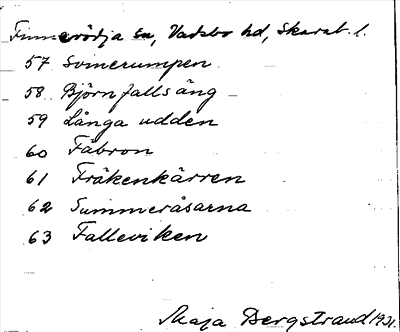 Finnerödja sn, Vadsbo hd, Skarab. l.
57 Svinerumpen
58 Björnfallsäng
59 Långa udden
60 Fäbron
61 Fräkenkärren
62 Summeråsarna
63 Falleviken
Maja Bergstrand 1921.